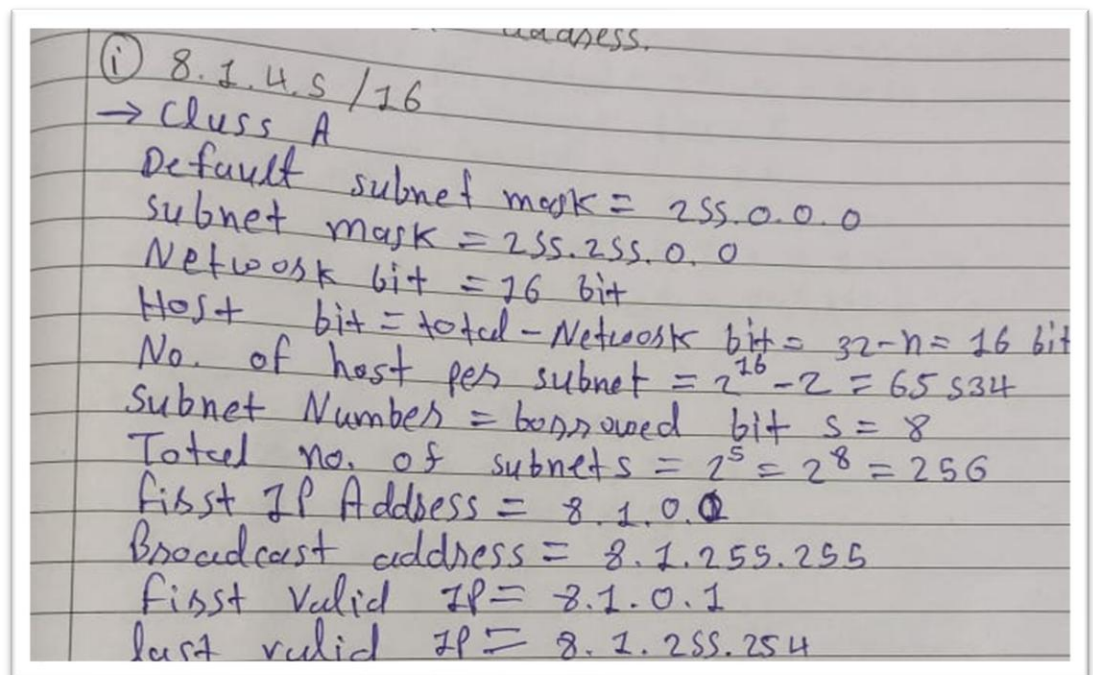 address.
(i) 8.1.4.5/16
→ Class A
Default subnet mask = 255.0.0.0
subnet mask = 255.255.0.0
Network bit = 16 bit
Host bit = total - Network bit = 32-n = 16 bit
No. of host per subnet = 2^16 - 2 = 65534
Subnet Number = borrowed bit s = 8
Total no. of subnets = 2^s = 2^8 = 256
first IP Address = 8.1.0.0
Broadcast address = 8.1.255.255
first Valid IP = 8.1.0.1
last valid IP = 8.1.255.254